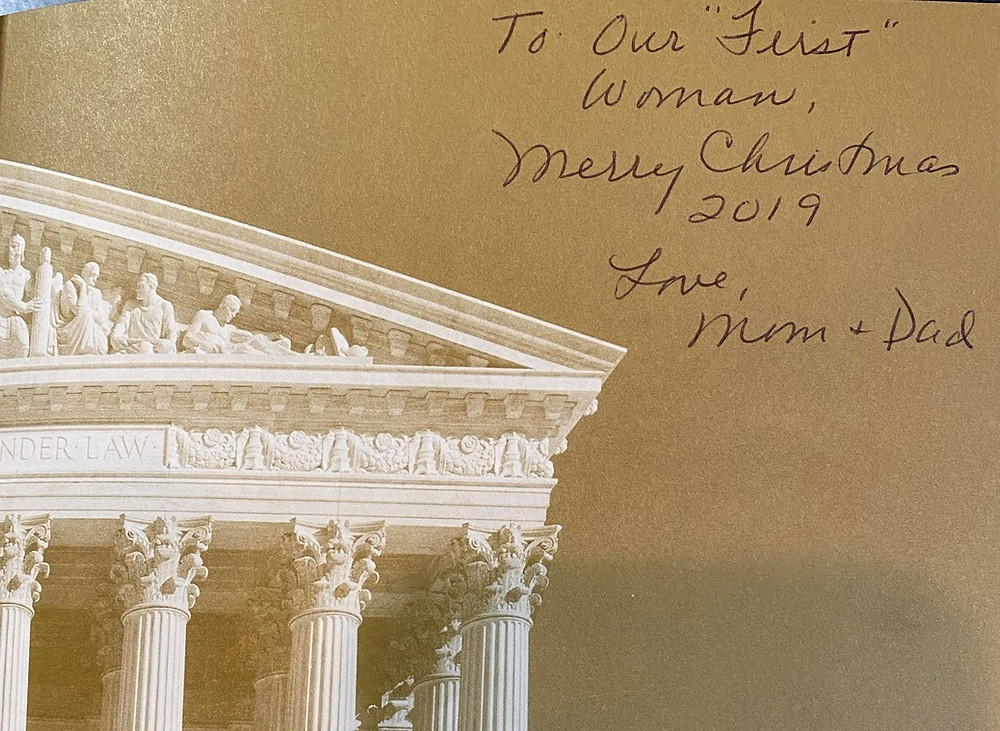 To Our "First"
Woman,
Merry Christmas
2019
Love,
Mom + Dad
NDER · LAW ·